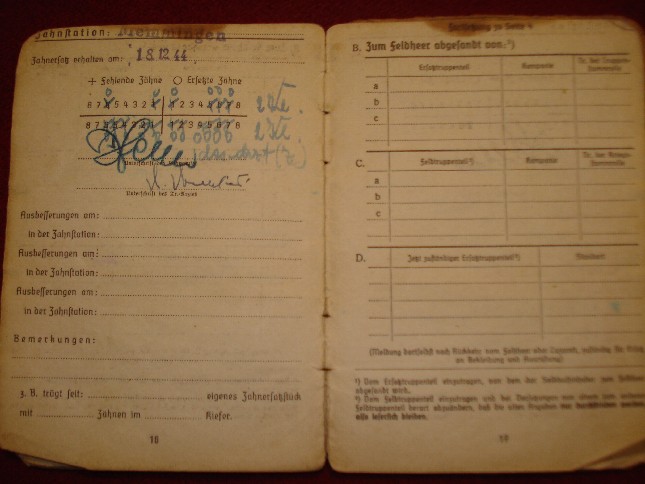 Zahnstation: Memmingen
Zahnersatz erhalten am: 18.12.44
+ Fehlende Zähne O Ersetzte Zähne
8 7 6 5 4 3 2 1 1 2 3 4 5 6 7 8
8 7 6 5 4 3 2 1 1 2 3 4 5 6 7 8
Unterschrift des
Ausbesserungen am:
in der Zahnstation:
Ausbesserungen am:
in der Zahnstation:
Ausbesserungen am:
in der Zahnstation:
Bemerkungen:
z. B. trägt seit: eigenes Zahnersatzstück
mit Zähnen im Kiefer.
18
Fortsetzung zu Seite 4
B. Zum Feldheer abgesandt von:¹)
Ersatztruppenteil Kompanie Nr. der Truppenstammrolle
a
b
c
C. Feldtruppenteil²) Kompanie
a
b
c
D. Jetzt zuständiger Ersatztruppenteil Standort
(Meldung dortselbst nach Rückkehr vom Feldheer oder Lazarett, zuständig für
zu Bekleidung und Ausrüstung)
¹) Vom Ersatztruppenteil einzutragen, von dem der
abgesandt wird.
²) Vom Feldtruppenteil einzutragen und bei Versetzungen von einem zum anderen
Feldtruppenteil derart abzuändern, daß die alten Angaben nur durchstrichen werden,
also leserlich bleiben.
19